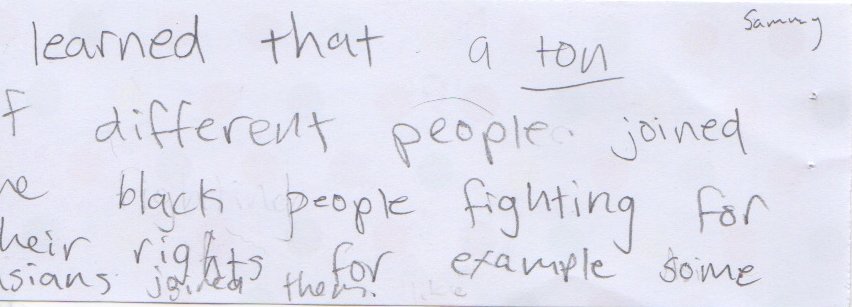 Sammy
learned that a ton
f different people joined
e black people fighting for
heir rights for example some
sians joined them.